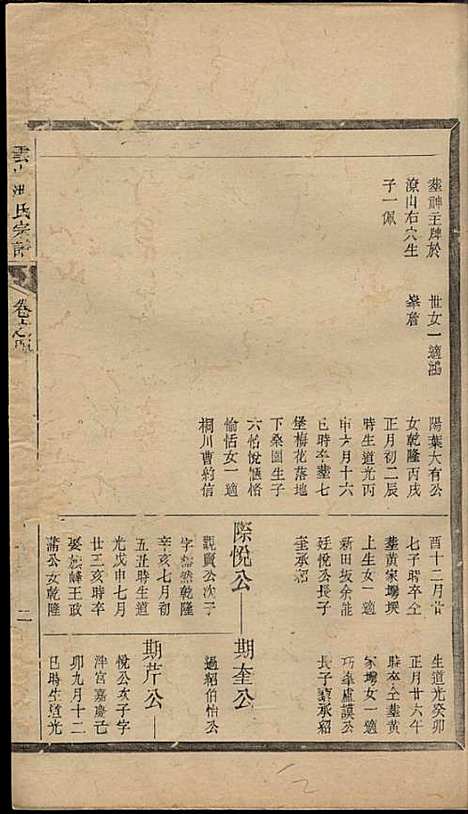 塟神主牌於
潦山右穴生
子一佩
世女一適潟
峯詹
陽葉大有公
女乾隆丙戌
正月初二辰
時生道光丙
申六月十六
巳時卒塟七
堡梅花落地
下桑園生子
六恰悅愜恪
愉恬女一適
桐川曹約信
酉十二月廿
七子時卒仝
塟黃家塝墺
上生女一適
新田坂余能
廷悅公長子
奎承紹
際悅公
觀賢公次子
字 然乾隆
辛亥七月初
五丑時生道
光戊申七月
廿三亥時卒
娶 峰王政
蒲公女乾隆
生道光癸卯
正月廿六午
時卒仝塟黃
家塝女一適
巧 盧謨公
長子 承紹
期奎公
過紹伯怡公
期芹公
悅公次子字
泮宮嘉慶己
卯九月十二
巳時生道光
氏宗譜
卷
二